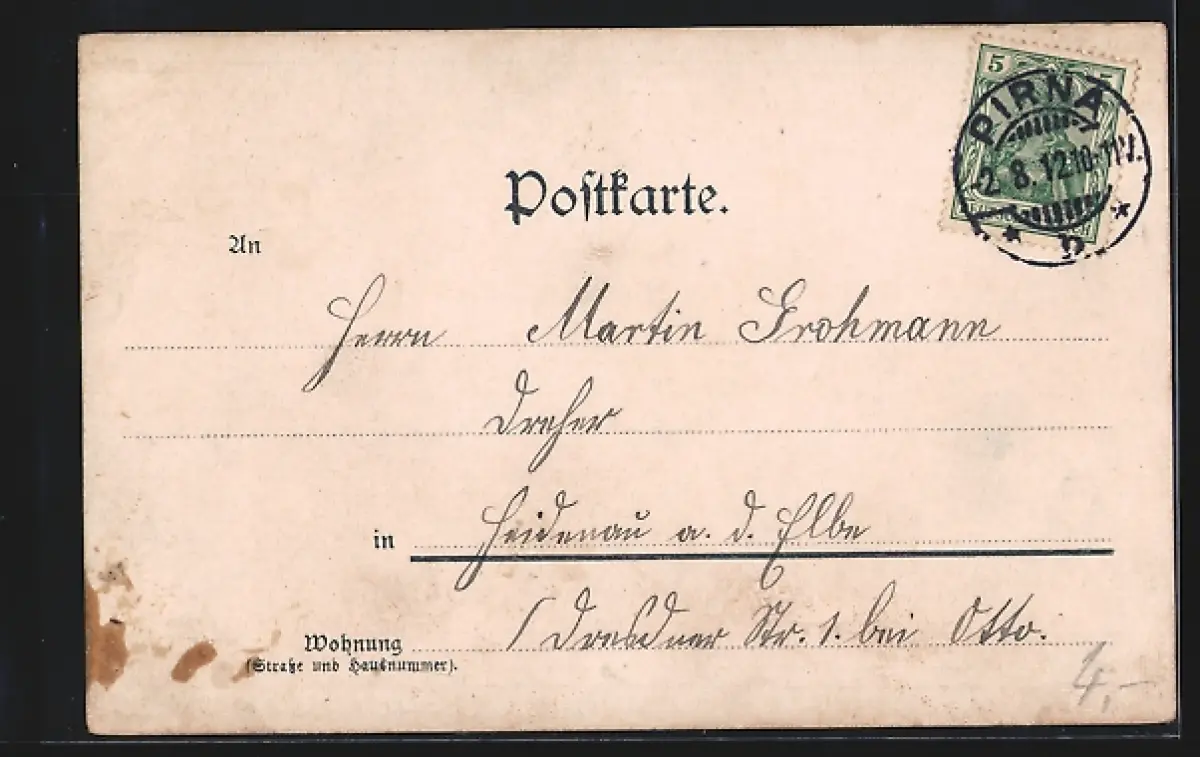 5 5
PIRNA
-2.8.12.10-11V.
Postkarte.
An
Herrn Martin Grohmann
Dreher
in Heidenau a. d. Elbe
Wohnung / Dresdner Str. 1. bei Otto.
(Straße und Hausnummer).
4,-